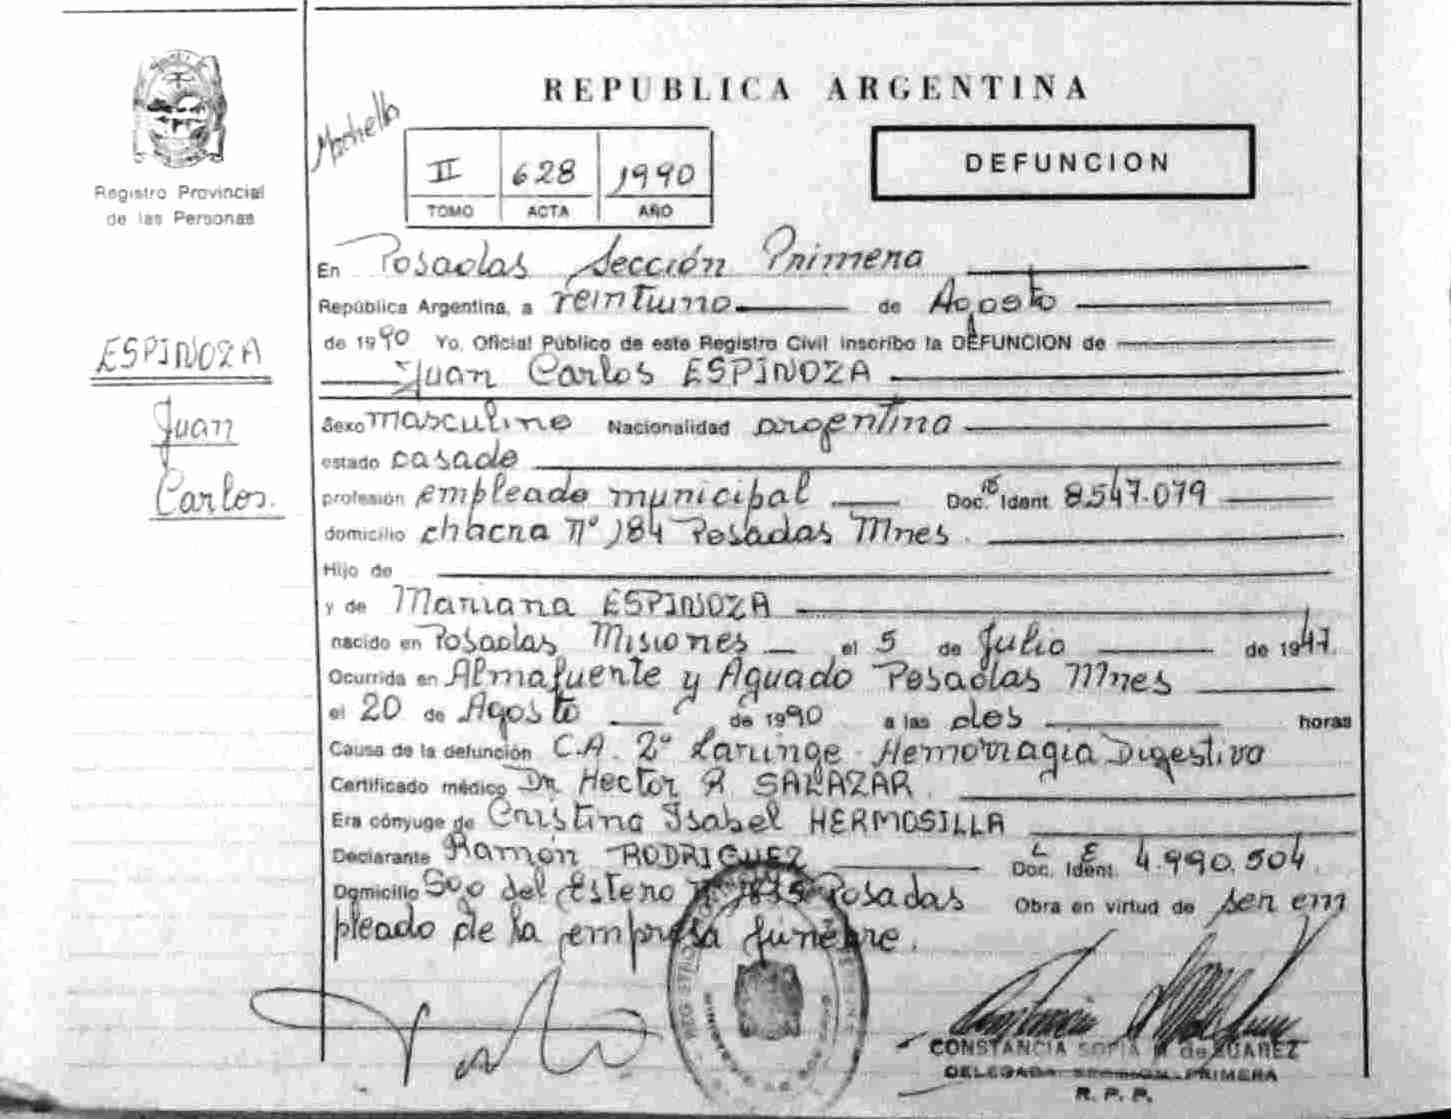 REPUBLICA ARGENTINA
Registro Provincial
de las Personas
II 628 1990
TOMO ACTA AÑO
DEFUNCION
En Posadas Sección Primera
República Argentina, a veintiuno de Agosto
de 1990 Yo, Oficial Público de este Registro Civil inscribo la DEFUNCION de
Juan Carlos ESPINOZA
ESPINOZA
Juan
Carlos.
Sexo masculino Nacionalidad argentina
estado casado
profesión empleado municipal Doc. Ident. 8.547.079
domicilio chacra Nº 184 Posadas Mnes.
Hijo de
y de Mariana ESPINOZA
nacido en Posadas Misiones el 5 de Julio de 1947.
Ocurrida en Almafuerte y Aguado Posadas Mnes
el 20 de Agosto de 1990 a las dos horas
Causa de la defunción C.A. 2º Laringe - Hemorragia Digestiva
Certificado médico Dr. Hector R. SALAZAR.
Era cónyuge de Cristina Isabel HERMOSILLA
Declarante Ramón RODRIGUEZ Doc. Ident. L E 4.990.504.
Domicilio Sgo del Estero Posadas Obra en virtud de ser em
pleado de la empresa fúnebre.
CONSTANCIA SOFIA de SUAREZ
DELEGADA SECCION PRIMERA
R. P. P.